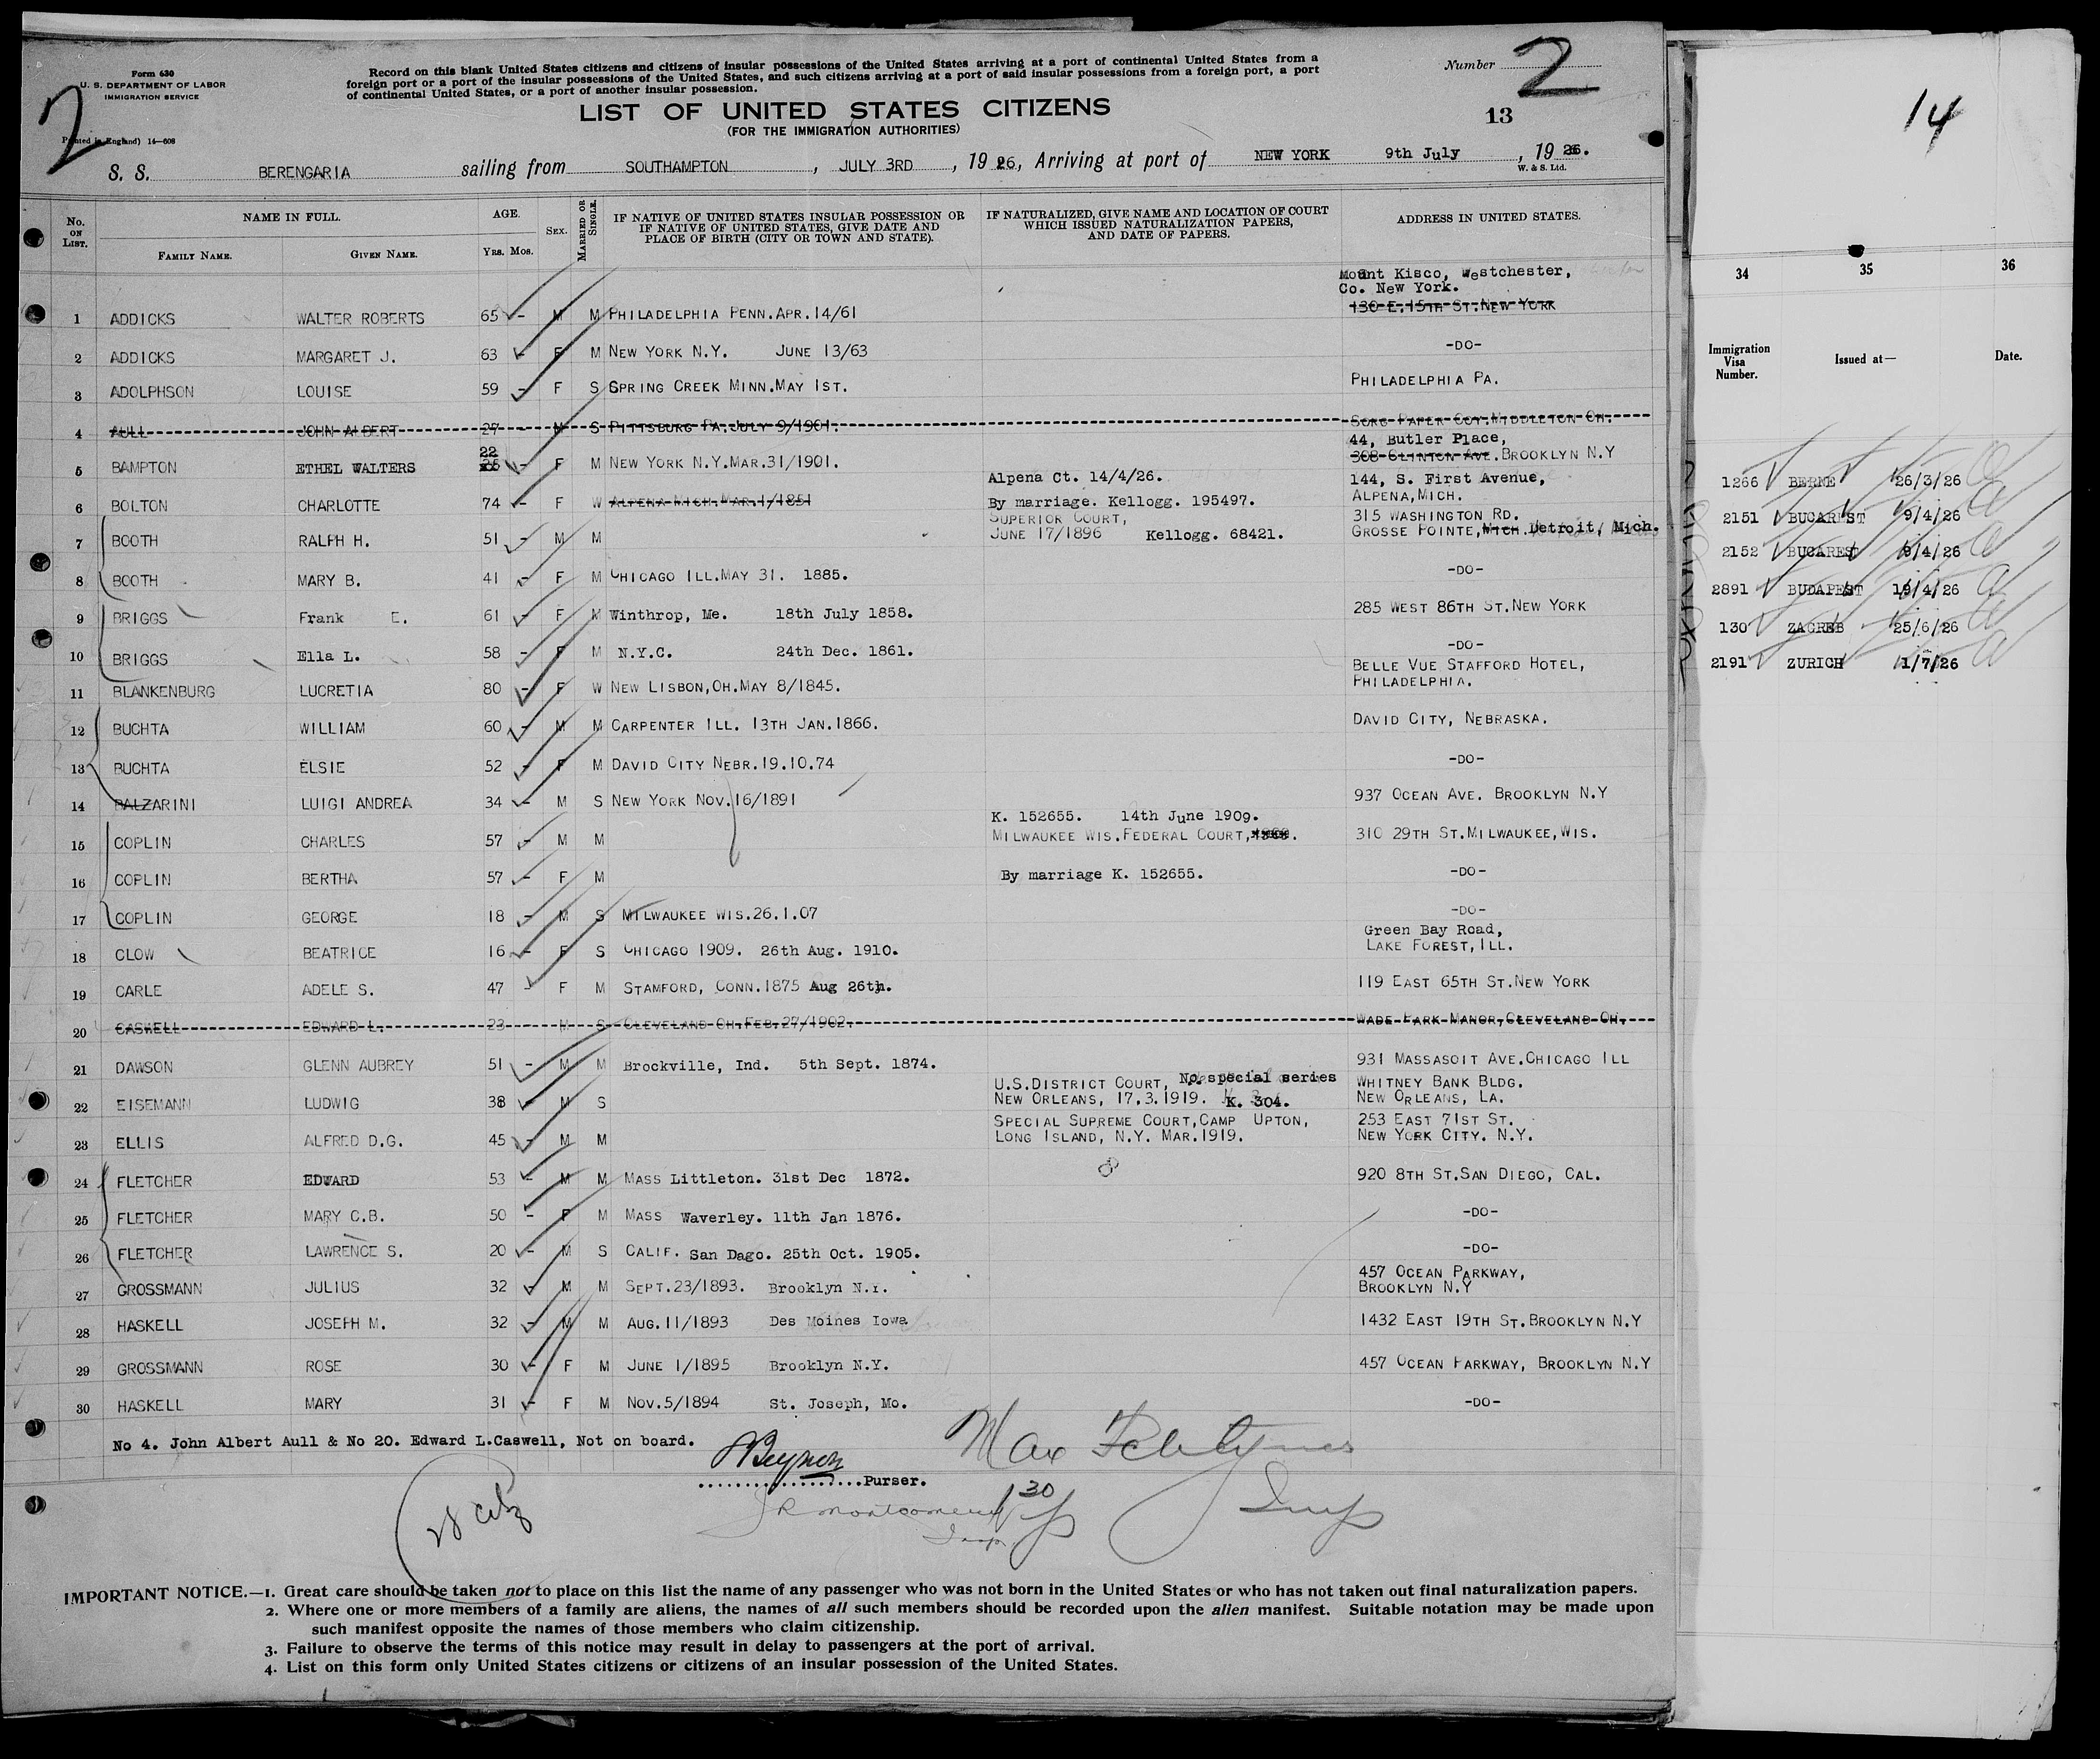 Form 630
U. S. DEPARTMENT OF LABOR
IMMIGRATION SERVICE
Record on this blank United States citizens and citizens of insular possessions of the United States arriving at a port of continental United States from a
foreign port or a port of the insular possessions of the United States, and such citizens arriving at a port of said insular possessions from a foreign port, a port
of continental United States, or a port of another insular possession.
Number 2
2
LIST OF UNITED STATES CITIZENS
(FOR THE IMMIGRATION AUTHORITIES)
13
(Printed in England) 14—608
S. S. BERENGARIA sailing from SOUTHAMPTON, JULY 3RD, 1926, Arriving at port of NEW YORK 9th July, 1926.
W. & S. Ltd.
No. ON LIST. NAME IN FULL. FAMILY NAME. GIVEN NAME. AGE. YRS. MOS. SEX. MARRIED OR SINGLE. IF NATIVE OF UNITED STATES INSULAR POSSESSION OR IF NATIVE OF UNITED STATES, GIVE DATE AND PLACE OF BIRTH (CITY OR TOWN AND STATE). IF NATURALIZED, GIVE NAME AND LOCATION OF COURT WHICH ISSUED NATURALIZATION PAPERS, AND DATE OF PAPERS. ADDRESS IN UNITED STATES.
Mount Kisco, Westchester,
Co. New York.
1 ADDICKS WALTER ROBERTS 65 - M M PHILADELPHIA PENN.APR.14/61 130 E.15TH ST.NEW YORK
2 ADDICKS MARGARET J. 63 - F M NEW YORK N.Y. JUNE 13/63 -DO-
3 ADOLPHSON LOUISE 59 - F S SPRING CREEK MINN.MAY 1ST. PHILADELPHIA PA.
4 AULL JOHN ALBERT 27 - M S PITTSBURG PA.JULY 9/1901. SORG PAPER COY.MIDDLETON OH.
22 44, Butler Place,
5 BAMPTON ETHEL WALTERS - F M NEW YORK N.Y.MAR.31/1901. 308 CLINTON AVE.BROOKLYN N.Y
Alpena Ct. 14/4/26. 144, S. First Avenue,
6 BOLTON CHARLOTTE 74 - F W ALPENA MICH.MAR.1/1851 By marriage. Kellogg. 195497. ALPENA,MICH.
SUPERIOR COURT, 315 WASHINGTON RD.
7 BOOTH RALPH H. 51 - M M JUNE 17/1896 Kellogg. 68421. GROSSE POINTE,MICH.Detroit, Mich.
8 BOOTH MARY B. 41 - F M CHICAGO ILL.MAY 31. 1885. -DO-
9 BRIGGS Frank E. 61 - F M Winthrop, Me. 18th July 1858. 285 WEST 86TH ST.NEW YORK
10 BRIGGS Ella L. 58 - F M N.Y.C. 24th Dec. 1861. -DO-
11 BLANKENBURG LUCRETIA 80 - F W NEW LISBON,OH.MAY 8/1845. BELLE VUE STAFFORD HOTEL, PHILADELPHIA.
12 BUCHTA WILLIAM 60 - M M CARPENTER ILL. 13TH JAN.1866. DAVID CITY, NEBRASKA.
13 BUCHTA ELSIE 52 - F M DAVID CITY NEBR.19.10.74 -DO-
14 BALZARINI LUIGI ANDREA 34 - M S NEW YORK NOV.16/1891 937 OCEAN AVE. BROOKLYN N.Y
K. 152655. 14th June 1909.
15 COPLIN CHARLES 57 - M M MILWAUKEE WIS.FEDERAL COURT, 310 29TH ST.MILWAUKEE,WIS.
16 COPLIN BERTHA 57 - F M By marriage K. 152655. -DO-
17 COPLIN GEORGE 18 - M S MILWAUKEE WIS.26.1.07 -DO-
Green Bay Road,
18 CLOW BEATRICE 16 - F S CHICAGO 1909. 26th Aug. 1910. LAKE FOREST,ILL.
19 CARLE ADELE S. 47 F M STAMFORD, CONN.1875 Aug 26th. 119 EAST 65TH ST.NEW YORK
20 CASWELL EDWARD L. 23 - M S CLEVELAND OH.FEB.27/1902. WADE PARK MANOR,CLEVELAND OH.
21 DAWSON GLENN AUBREY 51 - M M Brockville, Ind. 5th Sept. 1874. 931 MASSASOIT AVE.CHICAGO ILL
U.S.DISTRICT COURT, No special series WHITNEY BANK BLDG.
22 EISEMANN LUDWIG 38 - M S NEW ORLEANS, 17.3.1919. K. 304. NEW ORLEANS, LA.
SPECIAL SUPREME COURT,CAMP UPTON, 253 EAST 71ST ST.
23 ELLIS ALFRED D.G. 45 - M M LONG ISLAND, N.Y. MAR.1919. NEW YORK CITY. N.Y.
24 FLETCHER EDWARD 53 - M M MASS Littleton. 31st Dec 1872. 920 8TH ST.SAN DIEGO, CAL.
25 FLETCHER MARY C.B. 50 - F M MASS Waverley. 11th Jan 1876. -DO-
26 FLETCHER LAWRENCE S. 20 - M S CALIF. San Dago. 25th Oct. 1905. -DO-
457 OCEAN PARKWAY,
27 GROSSMANN JULIUS 32 - M M SEPT.23/1893. Brooklyn N.Y. BROOKLYN N.Y
28 HASKELL JOSEPH M. 32 - M M AUG.11/1893 Des Moines Iowa 1432 EAST 19TH ST.BROOKLYN N.Y
29 GROSSMANN ROSE 30 - F M JUNE 1/1895 Brooklyn N.Y. 457 OCEAN PARKWAY, BROOKLYN N.Y
30 HASKELL MARY 31 - F M NOV.5/1894 St. Joseph, Mo. -DO-
No 4. John Albert Aull & No 20. Edward L.Caswell, Not on board.
Purser.
30
IMPORTANT NOTICE.—1. Great care should be taken not to place on this list the name of any passenger who was not born in the United States or who has not taken out final naturalization papers.
2. Where one or more members of a family are aliens, the names of all such members should be recorded upon the alien manifest. Suitable notation may be made upon
such manifest opposite the names of those members who claim citizenship.
3. Failure to observe the terms of this notice may result in delay to passengers at the port of arrival.
4. List on this form only United States citizens or citizens of an insular possession of the United States.
14
34 35 36
Immigration Visa Number. Issued at— Date.
1266 BERNE 26/3/26
2151 BUCAREST 9/4/26
2152 BUCAREST 9/4/26
2891 BUDAPEST 19/4/26
130 ZAGREB 25/6/26
2191 ZURICH 1/7/26